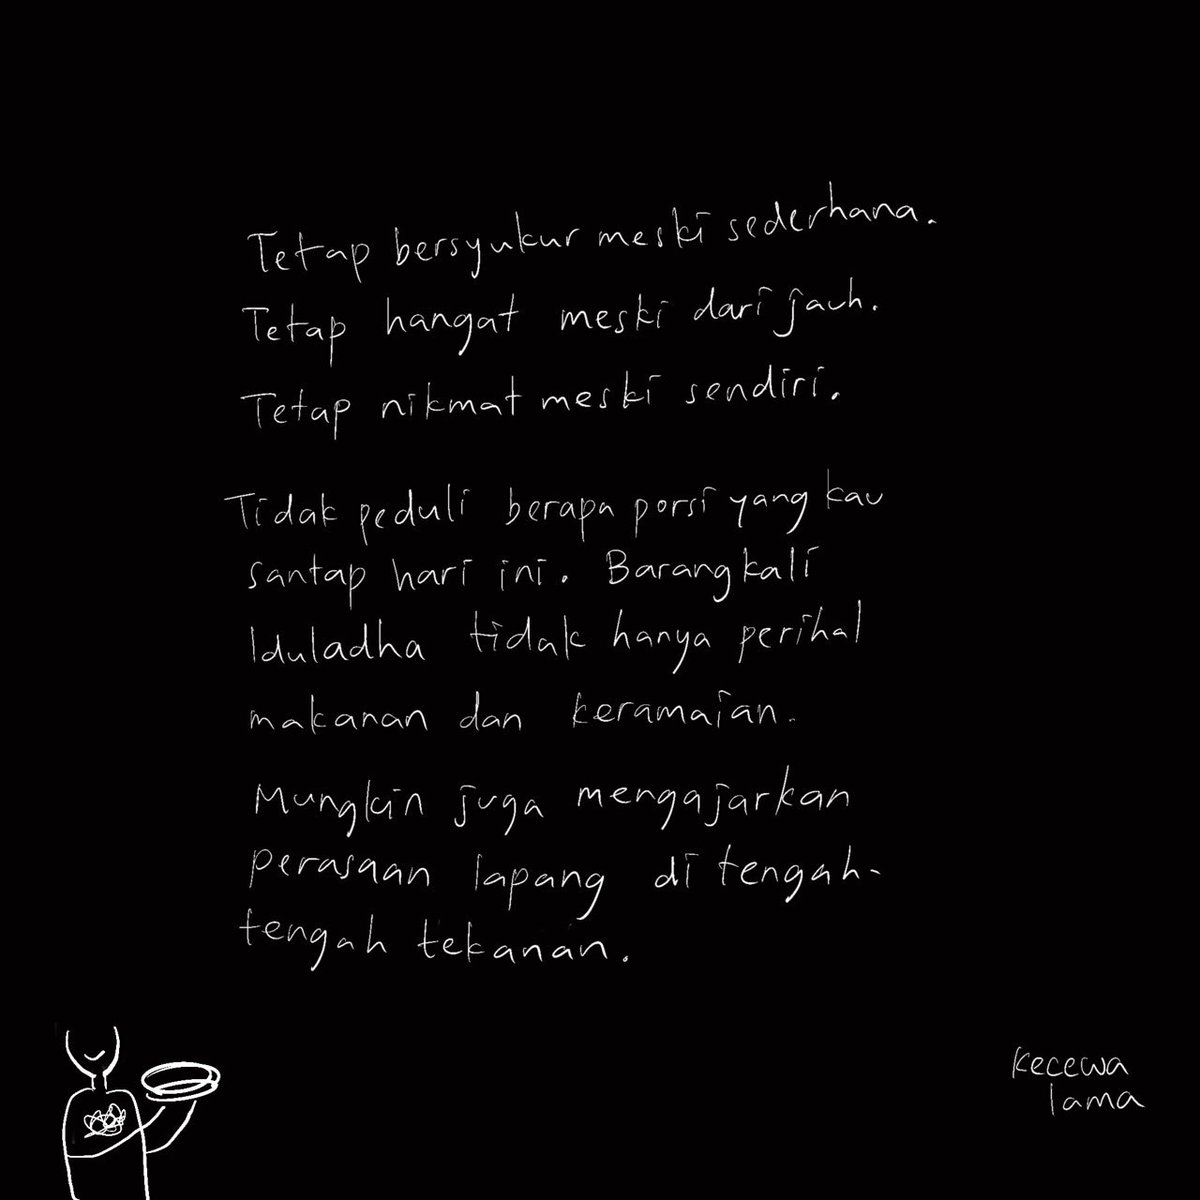 Tetap bersyukur meski sederhana.
Tetap hangat meski dari jauh.
Tetap nikmat meski sendiri.
Tidak peduli berapa porsi yang kau
santap hari ini. Barangkali
Iduladha tidak hanya perihal
makanan dan keramaian.
Mungkin juga mengajarkan
perasaan lapang di tengah-
tengah tekanan.
kecewa
lama